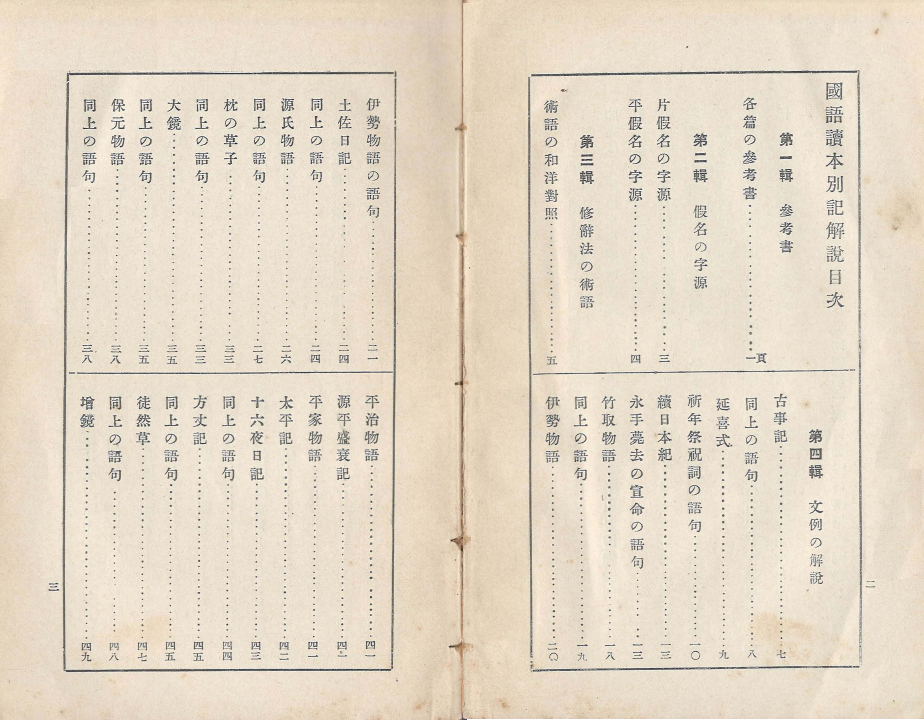 國語讀本別記解說目次
第一輯 參考書
各篇の參考書 一頁
第二輯 假名の字源
片假名の字源 三
平假名の字源 四
第三輯 修辭法の術語
術語の和洋對照 五
第四輯 文例の解說
古事記 七
同上の語句 八
延喜式 九
祈年祭祝詞の語句 一〇
續日本紀 一三
永手薨去の宣命の語句 一三
竹取物語 一八
同上の語句 一九
伊勢物語 二〇
二
伊勢物語の語句 二一
土佐日記 二四
同上の語句 二四
源氏物語 二六
同上の語句 二七
枕の草子 三三
同上の語句 三三
大鏡 三五
同上の語句 三五
保元物語 三八
同上の語句 三八
平治物語 四一
源平盛衰記 四一
平家物語 四一
太平記 四二
十六夜日記 四三
同上の語句 四四
方丈記 四五
同上の語句 四五
徒然草 四七
同上の語句 四八
增鏡 四九
三